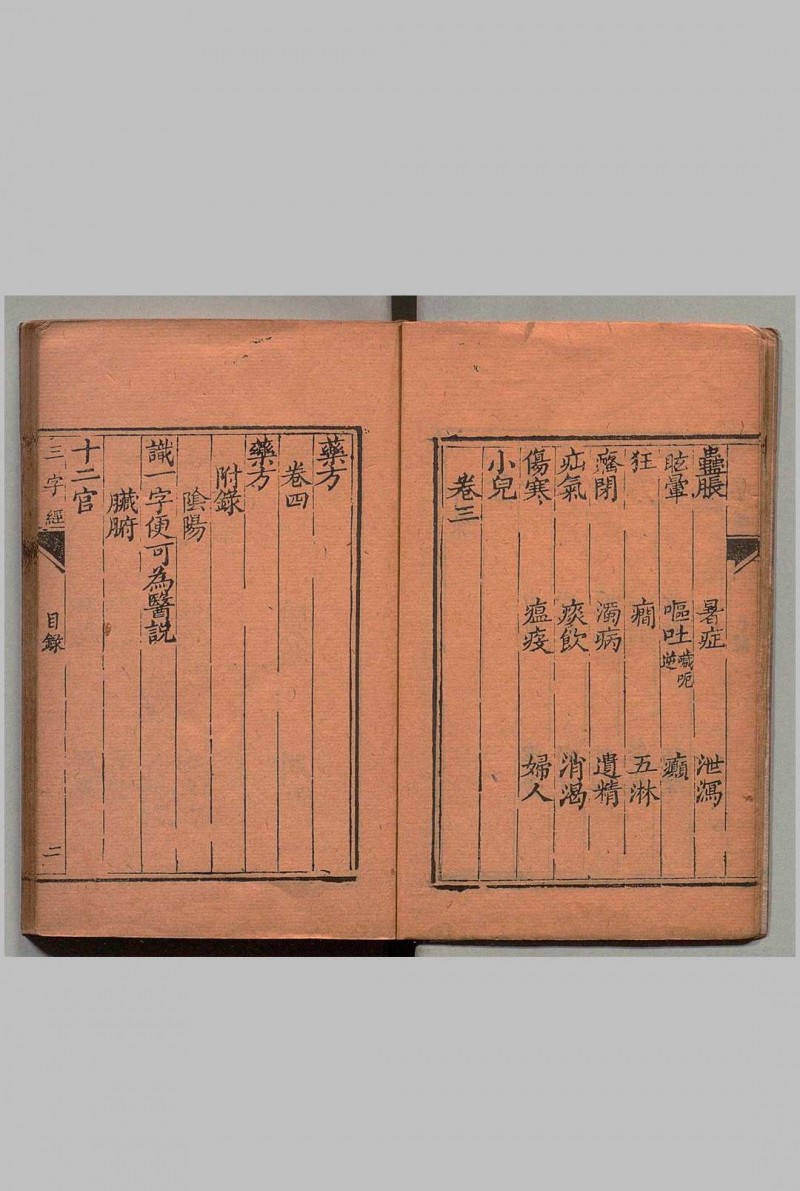 蠱脹 暑症 泄瀉
眩暈 嘔吐 噦呃逆 癲
狂 癇 五淋
癃閉 濁病 遺精
疝氣 痰飲 消渴
傷寒 瘟疫 婦人
小兒
卷三
藥方
卷四
藥方
附錄
陰陽
識一字便可為醫説
臟腑
十二官
三字經 目錄 二